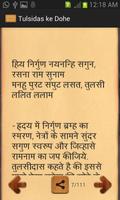 2:13 AM
Tulsidas ke Dohe
हिय निर्गुण नयनन्हि सगुन,
रसना राम सुनाम
मनहु पुरट संपुट लसत, तुलसी
ललित ललाम
- ह्रदय में निर्गुण ब्रम्ह का
स्मरण, नेत्रों के सामने सुन्दर
सगुण स्वरुप और जिव्हासे
रामनाम का जप कीजिये.
तुलसीदासजी कहते है कि यह
7/111